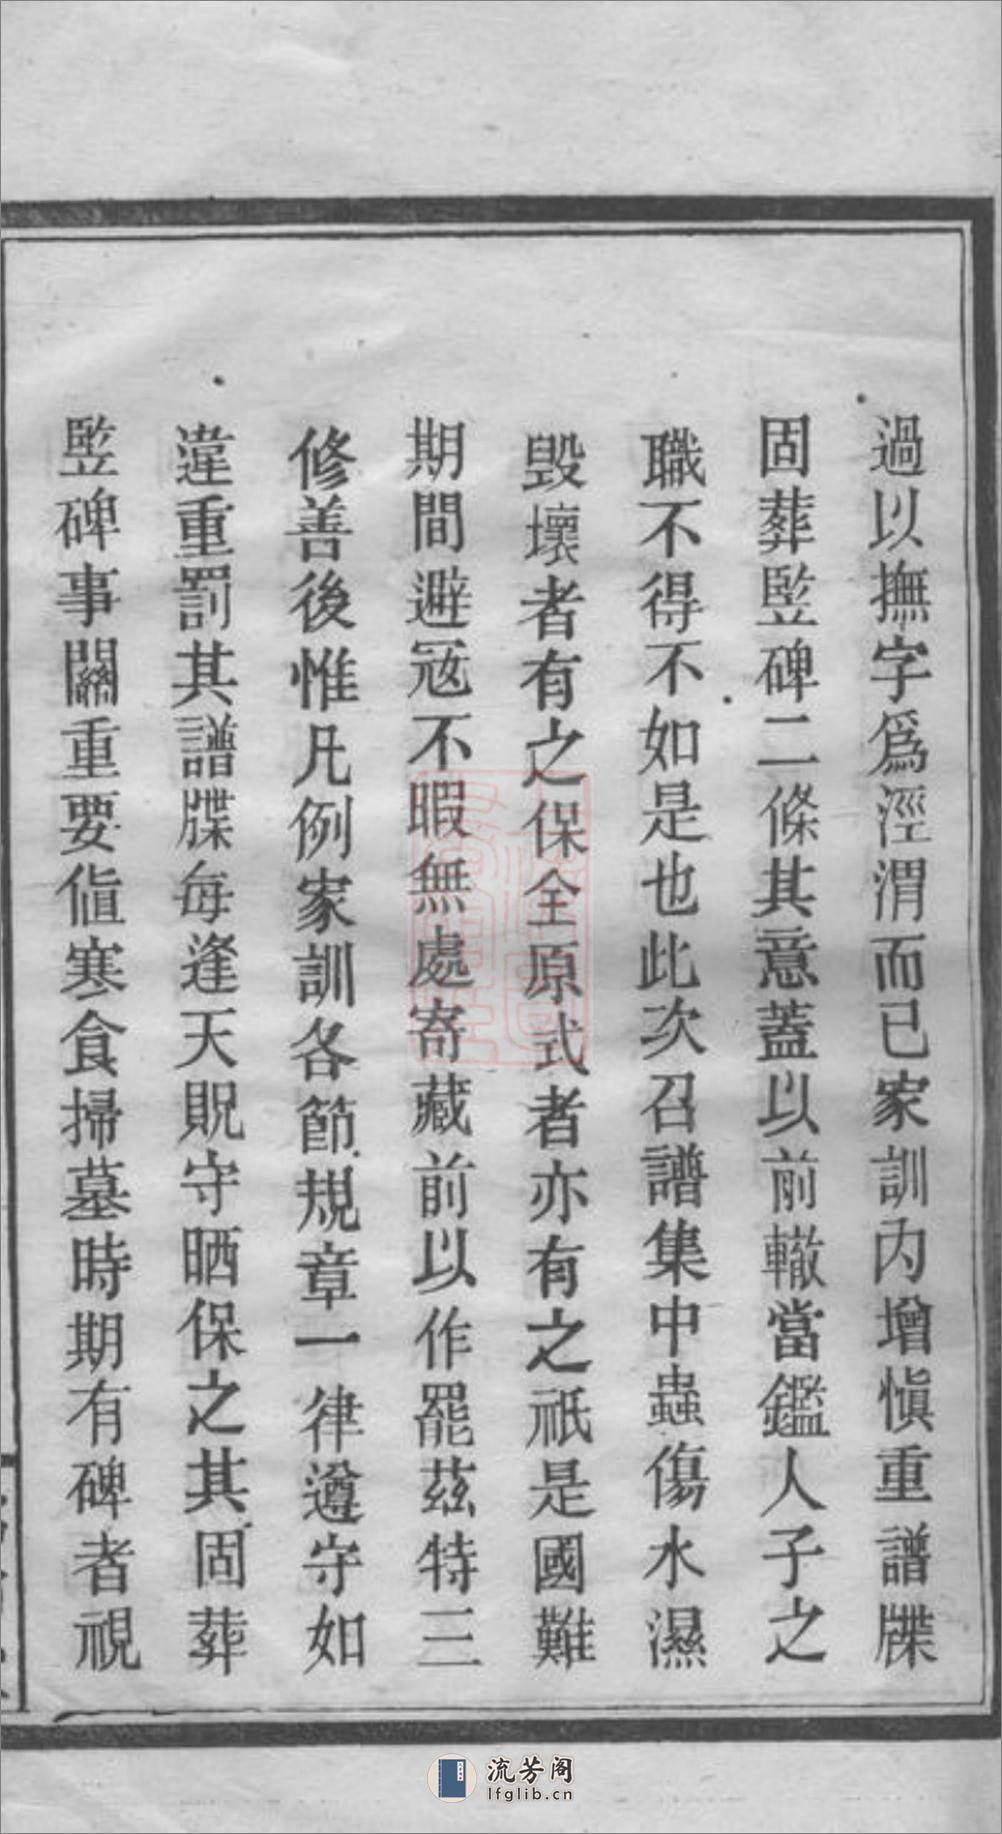 過以撫字爲涇渭而已家訓內增愼重譜牒
固葬監碑二條其意蓋以前轍當鑑人子之
職不得不如是也此次召譜集中蟲傷水濕
毀壞者有之保全原式者亦有之祇是國難
期間避寇不暇無處寄藏前以作罷茲特三
修善後惟凡例家訓各節規章一律遵守如
違重罰其譜牒每逢天貺守晒保之其固葬
監碑事關重要値寒食掃墓時期有碑者視
流芳阁
lfglib.cn